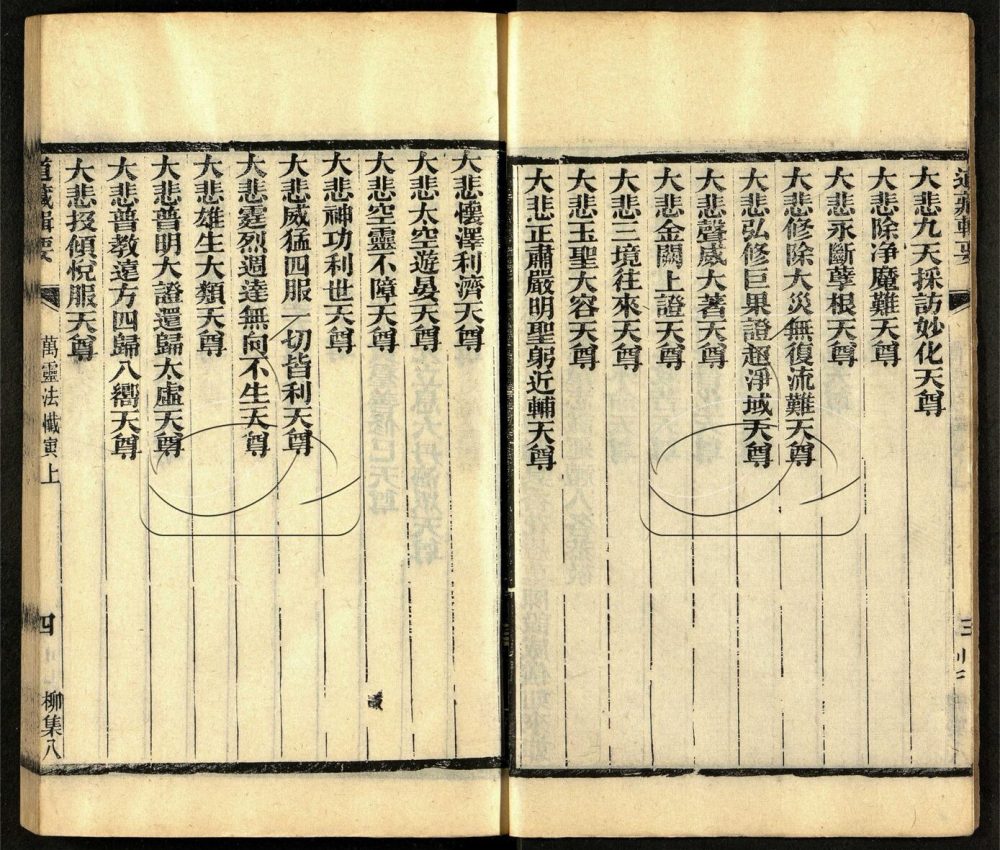 道藏輯要
三
大悲九天採訪妙化天尊
大悲除净魔難天尊
大悲永斷孽根天尊
大悲修除大災無復流難天尊
大悲弘修巨果證超淨域天尊
大悲聲威大著天尊
大悲金闕上證天尊
大悲三境往來天尊
大悲玉聖大容天尊
大悲正肅嚴明聖躬近輔天尊
大悲懷澤利濟天尊
大悲太空遊晏天尊
大悲空靈不障天尊
大悲神功利世天尊
大悲威猛四服一切皆利天尊
大悲霆烈週達無向不生天尊
大悲雄生大類天尊
大悲普明大證還歸太虛天尊
大悲普教遠方四歸八嚮天尊
大悲投傾悅服天尊
道藏輯要 萬靈法懺寅上 四 柳集八